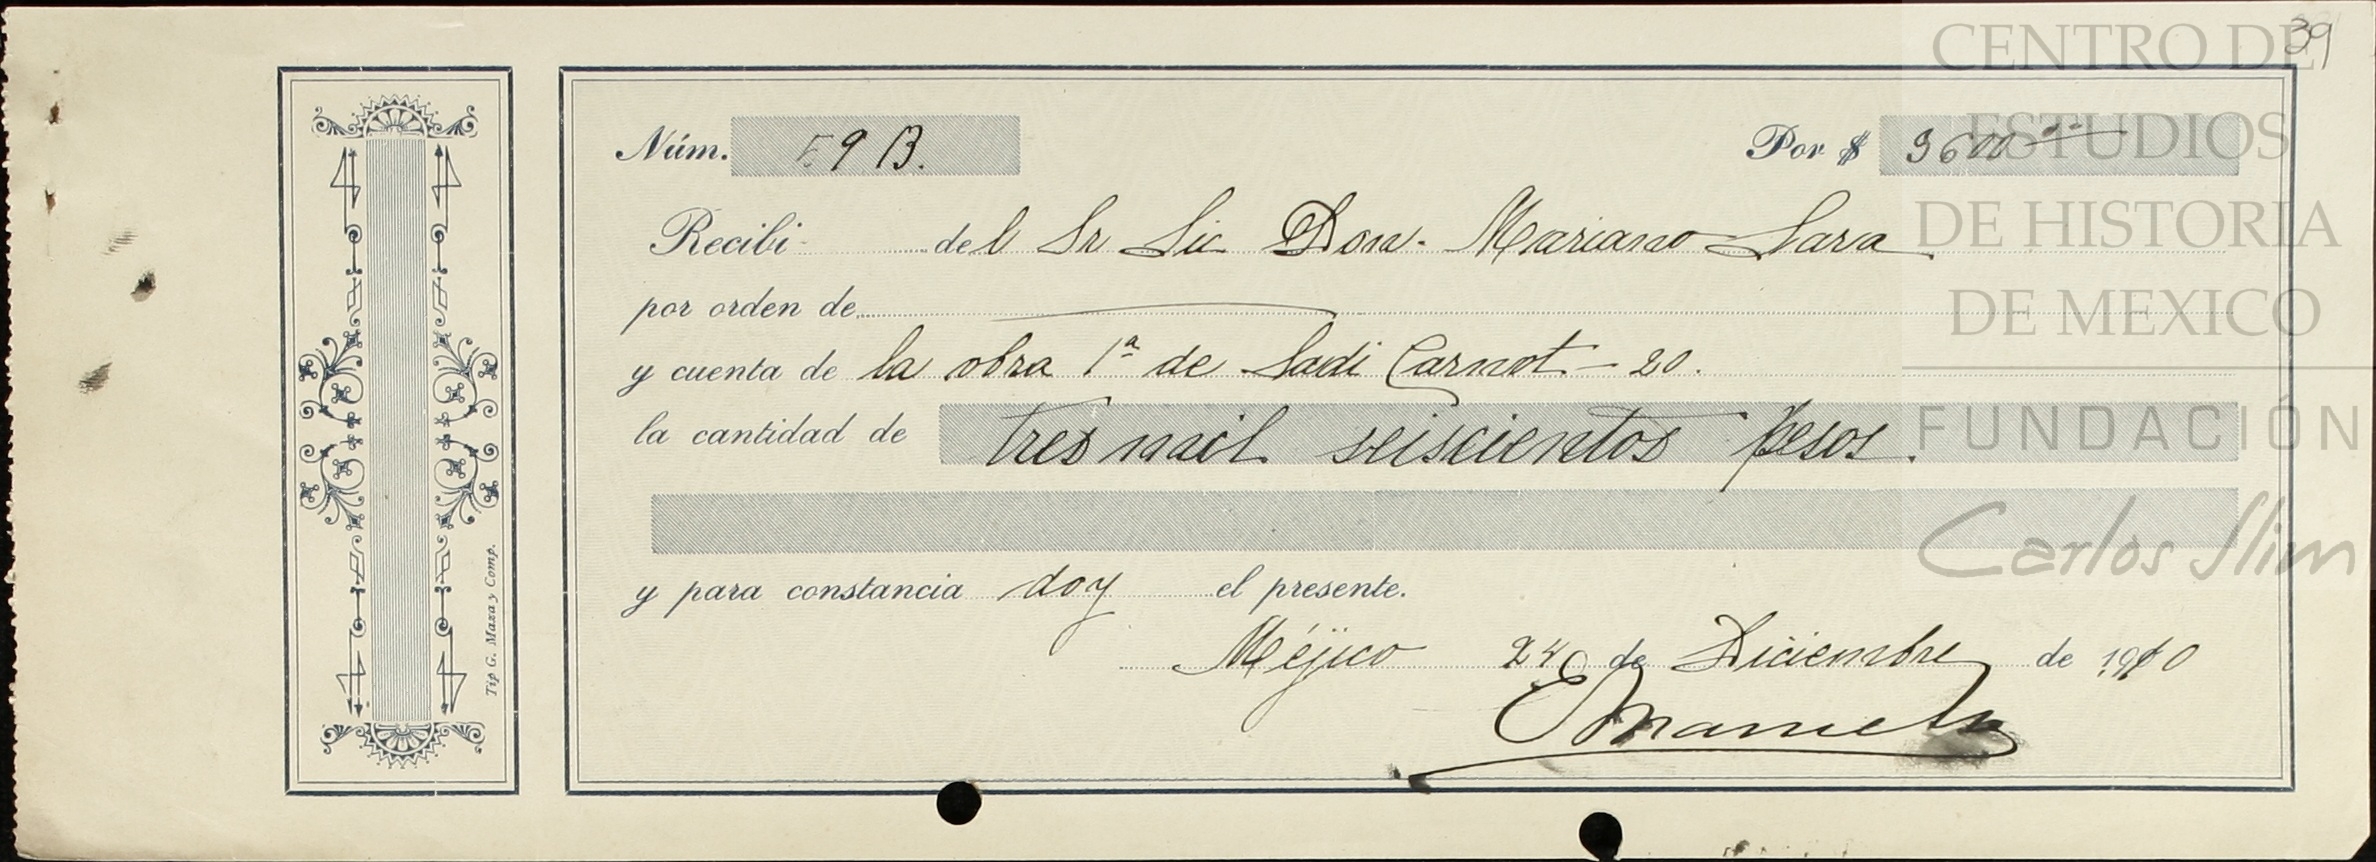 39
CENTRO DE
ESTUDIOS
DE HISTORIA
DE MEXICO
FUNDACIÓN
Carlos Slim
Núm. 59 B. Por $ 3600
Recibí del Sr Lic Don Mariano Lara
por orden de
y cuenta de la obra 1ª de Sadi Carnot - 20.
la cantidad de tres mil seiscientos pesos.
y para constancia doy el presente.
Méjico 24 de Diciembre de 1910
Tip G. Maza y Comp.